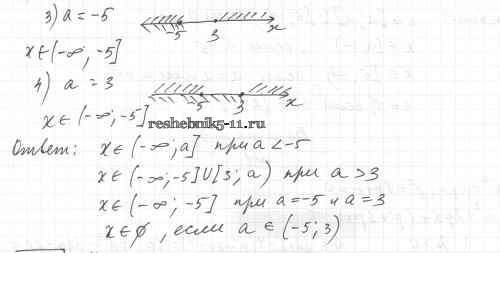 3) a = -5
-5 3 x
x ∈ (-∞; -5]
4) a = 3
-5 3 x
x ∈ (-∞; -5]
reshebnik5-11.ru
Ответ: x ∈ (-∞; a] при a < -5
x ∈ (-∞; -5] U [3; a) при a > 3
x ∈ (-∞; -5] при a = -5 и a = 3
x ∈ ∅, если a ∈ (-5; 3)